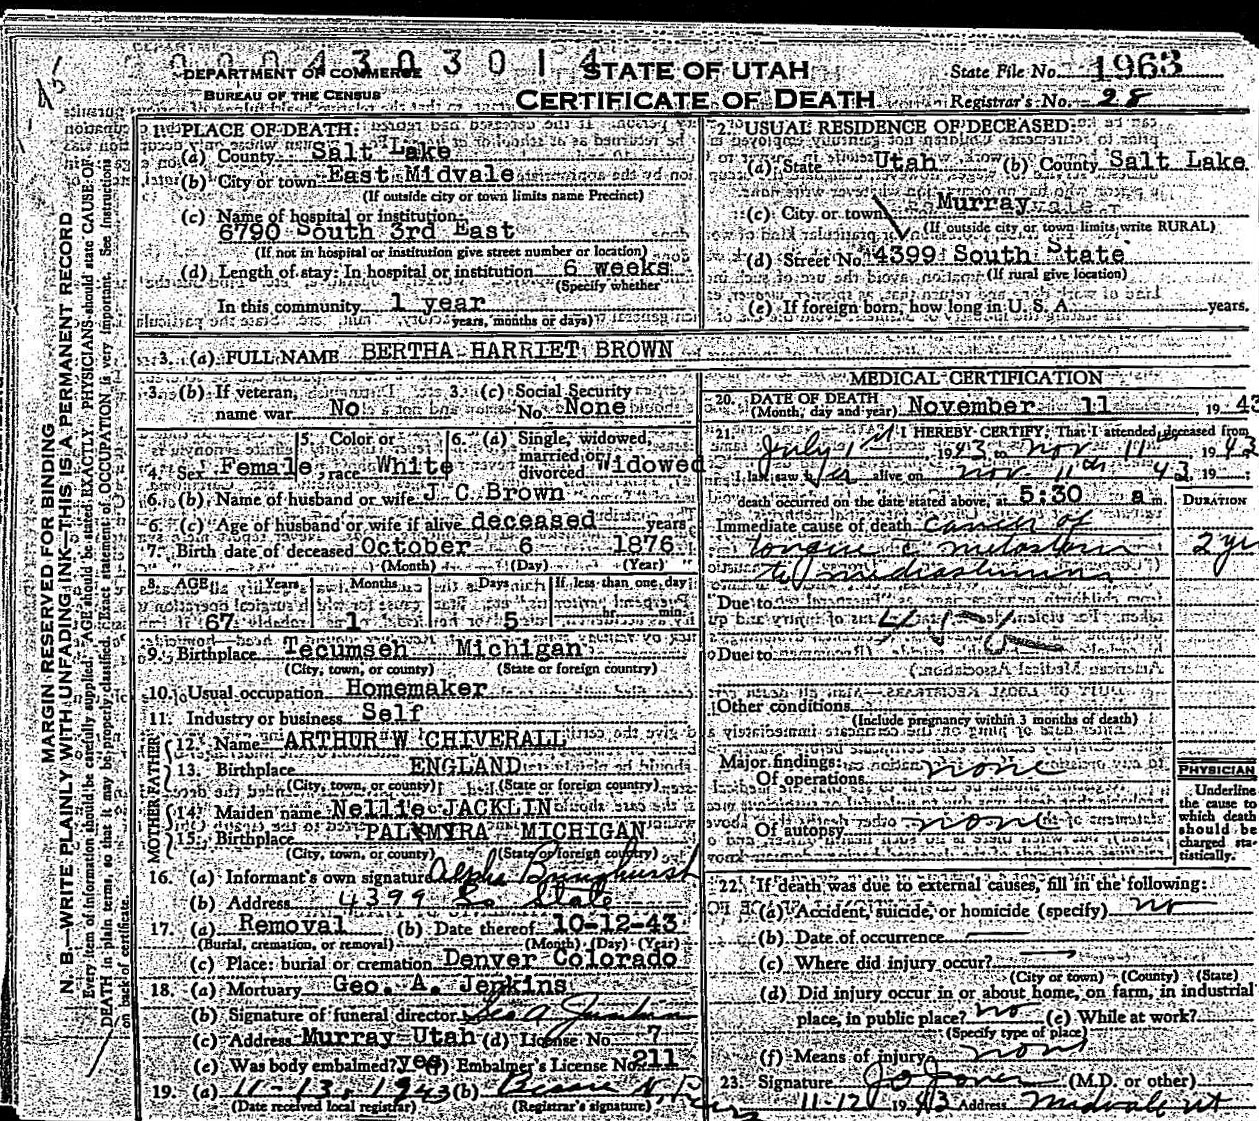 0004303014
DEPARTMENT OF COMMERCE
BUREAU OF THE CENSUS
STATE OF UTAH
CERTIFICATE OF DEATH
State File No. 1963
Registrar's No. 28
MARGIN RESERVED FOR BINDING
N. B.—WRITE PLAINLY WITH UNFADING INK—THIS IS A PERMANENT RECORD
Every item of information should be carefully supplied. AGE should be stated EXACTLY. PHYSICIANS should state CAUSE OF
DEATH in plain terms, so that it may be properly classified. Exact statement of OCCUPATION is very important. See instructions
on back of certificate.
1. PLACE OF DEATH:
(a) County Salt Lake
(b) City or town East Midvale
(If outside city or town limits name Precinct)
(c) Name of hospital or institution
6790 South 3rd East
(If not in hospital or institution give street number or location)
(d) Length of stay: In hospital or institution 6 weeks
(Specify whether
In this community 1 year
years, months or days)
2. USUAL RESIDENCE OF DECEASED:
(a) State Utah (b) County Salt Lake
(c) City or town Murray
(If outside city or town limits write RURAL)
(d) Street No. 4399 South State
(If rural give location)
(e) If foreign born, how long in U. S. A. years.
3. (a) FULL NAME BERTHA HARRIET BROWN
3. (b) If veteran, name war No 3. (c) Social Security No. None
4. Sex Female 5. Color or race White 6. (a) Single, widowed, married or divorced Widowed
6. (b) Name of husband or wife J C Brown
6. (c) Age of husband or wife if alive deceased years
7. Birth date of deceased October 6 1876
(Month) (Day) (Year)
8. AGE Years Months Days If less than one day
67 1 5 hr. min.
9. Birthplace Tecumseh Michigan
(City, town, or county) (State or foreign country)
10. Usual occupation Homemaker
11. Industry or business Self
FATHER
12. Name ARTHUR W CHIVERALL
13. Birthplace ENGLAND
(City, town, or county) (State or foreign country)
MOTHER
14. Maiden name Nellie JACKLIN
15. Birthplace PALMYRA MICHIGAN
(City, town, or county) (State or foreign country)
16. (a) Informant's own signature Alpha Bringhurst
(b) Address 4399 So State
17. (a) Removal (b) Date thereof 10-12-43
(Burial, cremation, or removal) (Month) (Day) (Year)
(c) Place: burial or cremation Denver Colorado
18. (a) Mortuary Geo. A. Jenkins
(b) Signature of funeral director Geo A Jenkins
(c) Address Murray Utah (d) License No. 7
(e) Was body embalmed? yes (f) Embalmer's License No. 211
19. (a) 11-13-1943 (b)
(Date received local registrar) (Registrar's signature)
MEDICAL CERTIFICATION
20. DATE OF DEATH
(Month, day and year) November 11, 1943
21. I HEREBY CERTIFY, That I attended deceased from
July 1st 1943 to Nov 11 1943
I last saw her alive on Nov 11th 43, 19
death occurred on the date stated above, at 5:30 a m.
DURATION
Immediate cause of death cancer of
tongue c metastasis 2 yrs
to mediastinum
Due to
Due to
Other conditions
(Include pregnancy within 3 months of death)
Major findings:
Of operations none
Of autopsy none
PHYSICIAN
Underline
the cause to
which death
should be
charged sta-
tistically.
22. If death was due to external causes, fill in the following:
(a) Accident, suicide, or homicide (specify) no
(b) Date of occurrence
(c) Where did injury occur?
(City or town) (County) (State)
(d) Did injury occur in or about home, on farm, in industrial
place, in public place? no (e) While at work?
(Specify type of place)
(f) Means of injury none
23. Signature J O Jones (M.D. or other)
11-12 1943 Address Midvale Ut